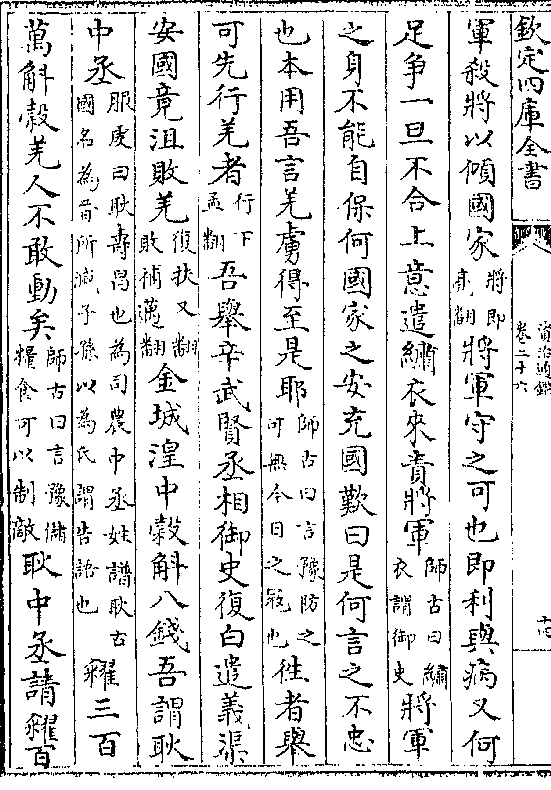 欽定四庫全書
資治通鑑
卷二十六
十四
軍殺將以傾國家將即亮翻將軍守之可也即利與病又何
足争一旦不合上意遣繡衣來責將軍師古曰繡衣謂御史將軍
之身不能自保何國家之安充國歎曰是何言之不忠
也本用吾言羌虜得至是耶師古曰言豫防之可無今日之寇也往者舉
可先行羌者行下孟翻吾舉辛武賢丞相御史復白遣義渠
安國竟沮敗羌復扶又翻敗補邁翻金城湟中穀斛八錢吾謂耿
中丞服虔曰耿壽昌也為司農中丞姓譜耿古國名為晉所滅子孫以為氏謂告語也糴三百
萬斛穀羌人不敢動矣師古曰言豫儲糧食可以制敵耿中丞請糴百